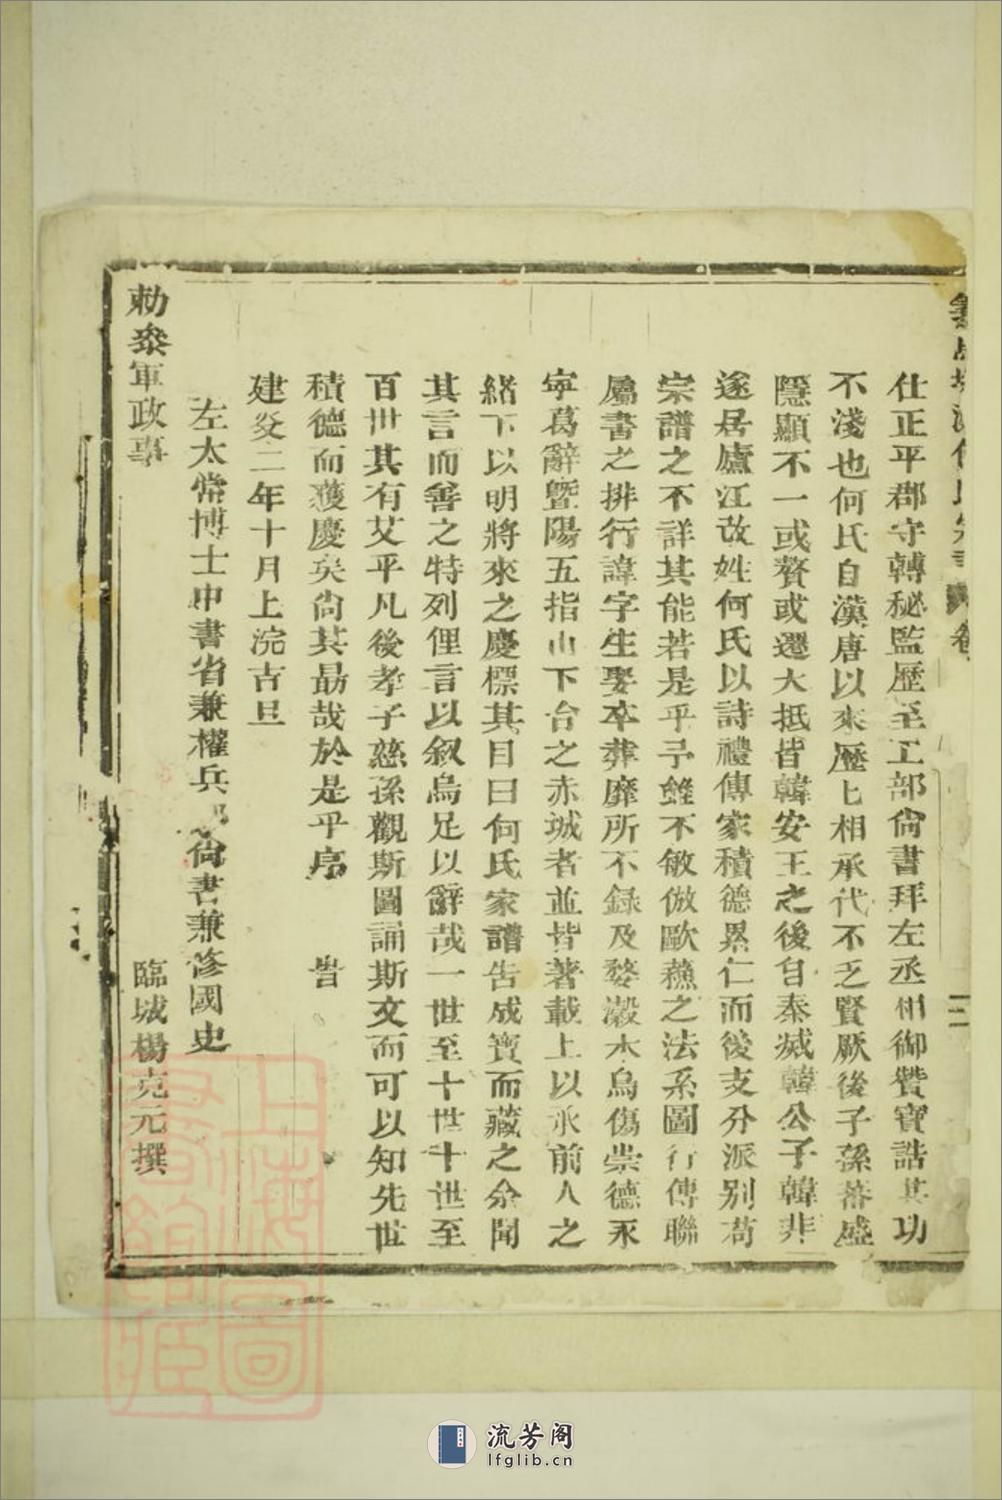 仕正平郡守轉秘監歷至工部尙書拜左丞相御贊寶誥其功
不淺也何氏自漢唐以來歷匕相承代不乏賢厥後子孫蕃盛
隱顯不一或贅或遷大抵皆韓安王之後自秦滅韓公子韓非
遂居廬江改姓何氏以詩禮傳家積德累仁而後支分派别苟
宗譜之不詳其能若是乎予雖不敏倣歐蘇之法系圖行傳聯
屬書之排行諱字生娶卒葬靡所不録及婺瀔水烏傷崇德永
寧葛辭暨陽五指山下台之赤城者並皆著載上以承前人之
緒下以明將來之慶標其目曰何氏家譜告成寶而藏之余聞
其言而善之特列俚言以叙烏足以辭哉一世至十世十世至
百世其有艾乎凡後孝子慈孫觀斯圖誦斯文而可以知先世
積德而獲慶矣尙其勗哉於是乎序 旹
建炎二年十月上浣吉旦
左太常博士中書省兼權兵部尙書兼修國史
勅叅軍政事 臨城楊克元撰
上海圖書館藏
流芳阁
lfglib.cn